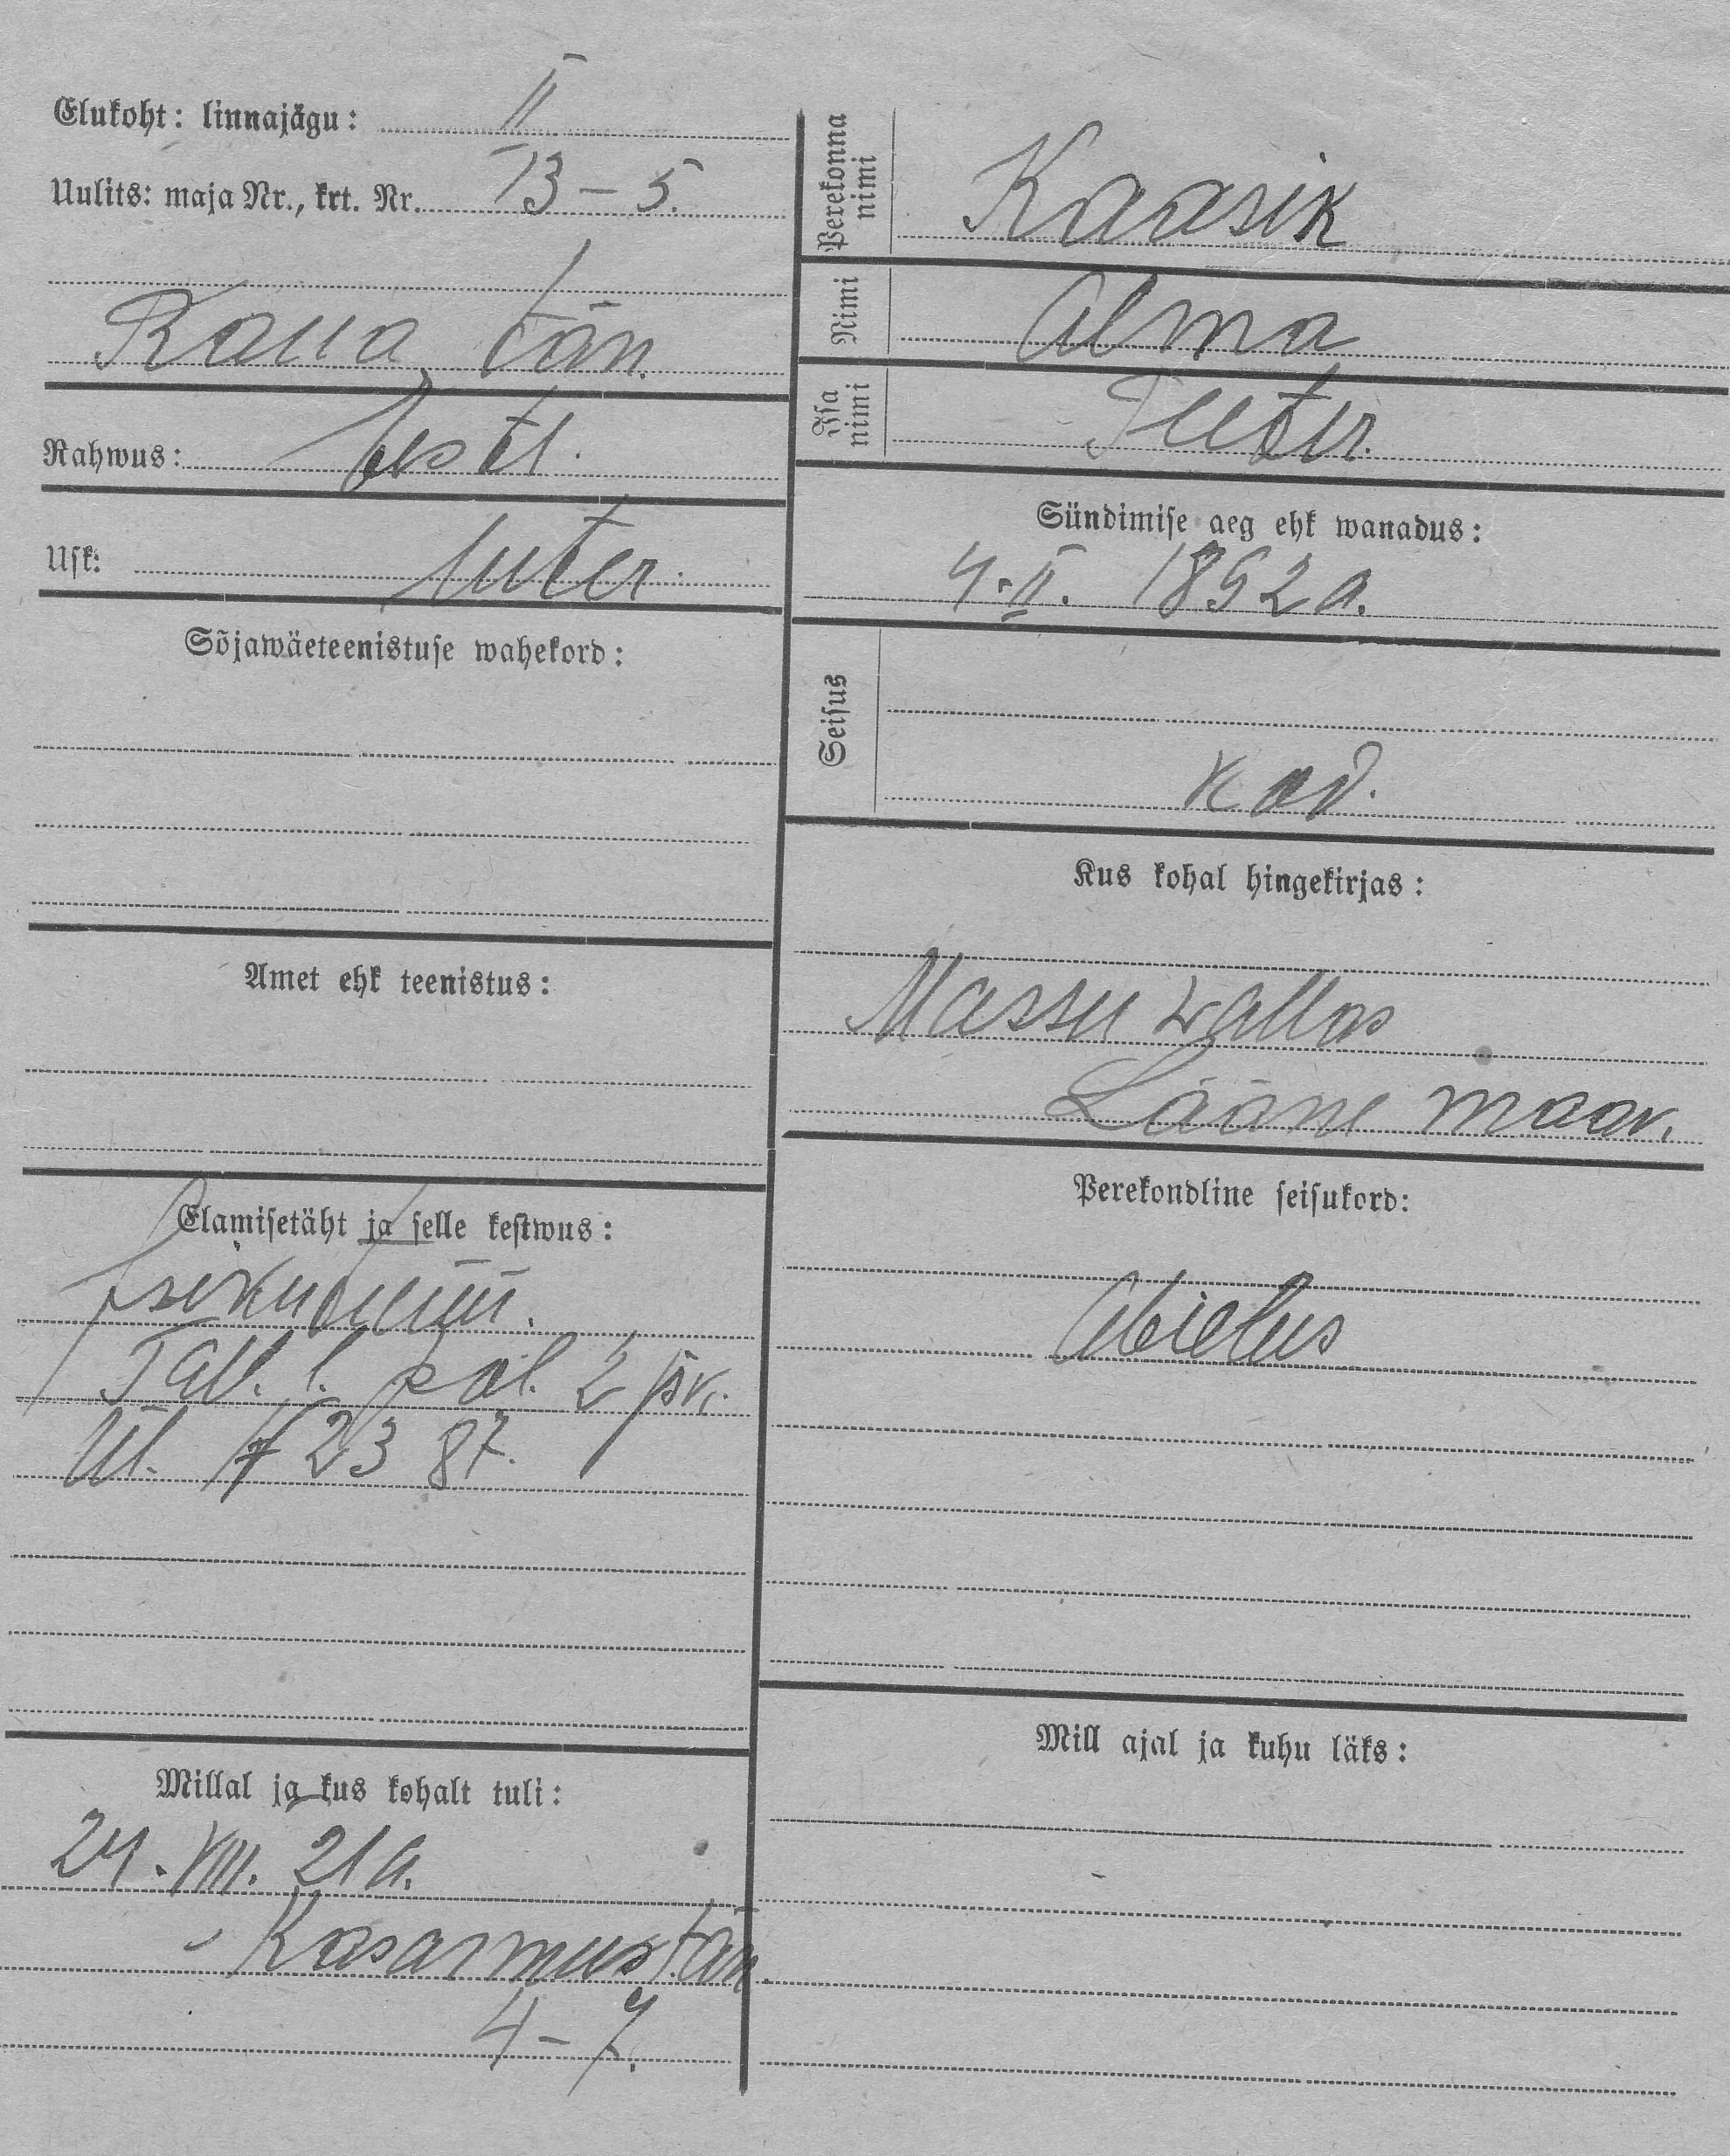 Elukoht: linnajägu: II
Uulits: maja Nr., krt. Nr. 13 – 5.
Raua tän.
Rahwus: Eesti.
Usk: luter.
Sõjawäeteenistuse wahekord:
Amet ehk teenistus:
Elamisetäht ja selle kestwus:
Isikutunn.
Tall. l. pol. 2 jsk.
ül. № 2387.
Millal ja kus kohalt tuli:
24. VIII. 21 a.
Kasarmus tän.
4 – 7.
Perekonna nimi Kaasik
Nimi Alma
Isa nimi Peeter.
Sündimise aeg ehk wanadus:
4. II. 1892 a.
Seisus
kod.
Kus kohal hingekirjas:
Massu wallas
Lääne maav.
Perekondline seisukord:
Abielus
Mill ajal ja kuhu läks: